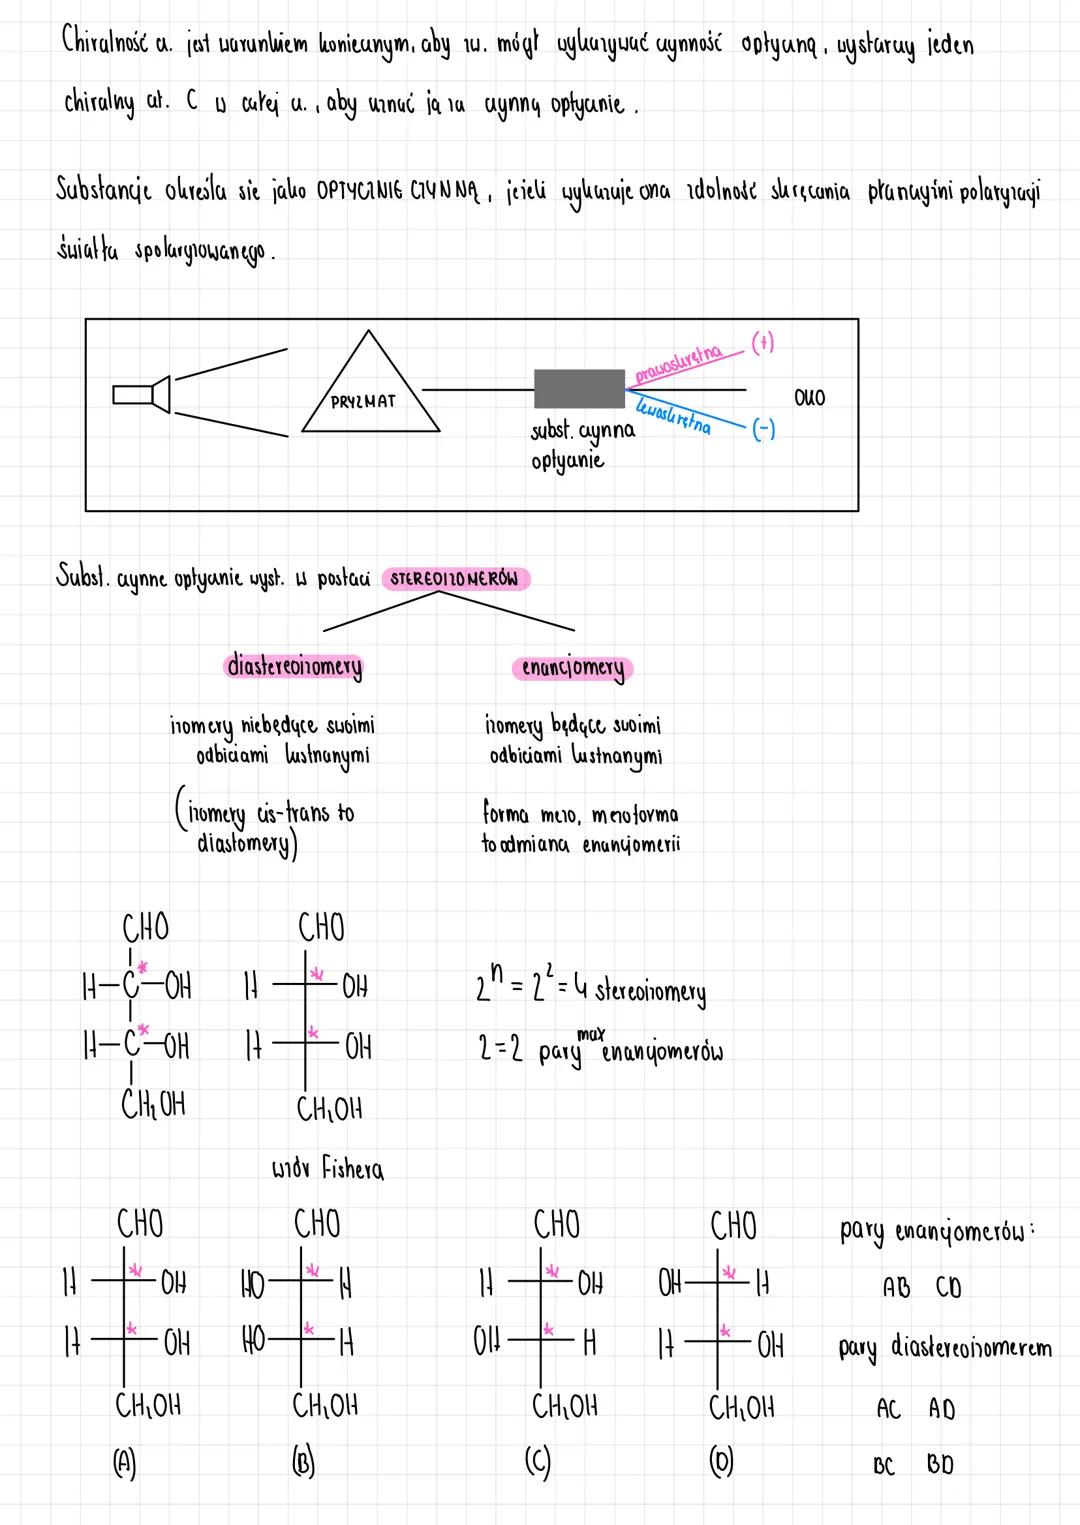 Chiralność cz. jest warunkiem koniecznym, aby zw. mógł wykazywać czynność optyczną, wystarczy jeden
chiralny at. C w całej cz., aby uznać ją za czynną optycznie.
Substancje określa sie jako OPTYCZNIE CZYNNĄ, jeżeli wykazuje ona zdolność skręcania płaszczyźni polaryzacji
światła spolaryzowanego.
PRYZMAT
prawoskrętna (+)
lewoskrętna (-)
OKO
subst. czynna
optycznie
Subst. czynne optycznie wyst. w postaci STEREOIZOMERÓW
diastereoizomery enancjomery
izomery niebędące swoimi
odbiciami lustrzanymi
(izomery cis-trans to
diastomery)
izomery będące swoimi
odbiciami lustrzanymi
forma mezo, mezoforma
to odmiana enancjomerii
CHO CHO
H-C*-OH H * OH
H-C*-OH H * OH
CH₂OH CH₂OH
2ⁿ = 2² = 4 stereoizomery
2=2 pary max enancjomerów
wzór Fishera
CHO CHO CHO CHO
H * OH HO * H H * OH OH * H
H * OH HO * H OH * H H * OH
CH₂OH CH₂OH CH₂OH CH₂OH
(A) (B) (C) (D)
pary enancjomerów:
AB CD
pary diastereoizomerem
AC AD
BC BD